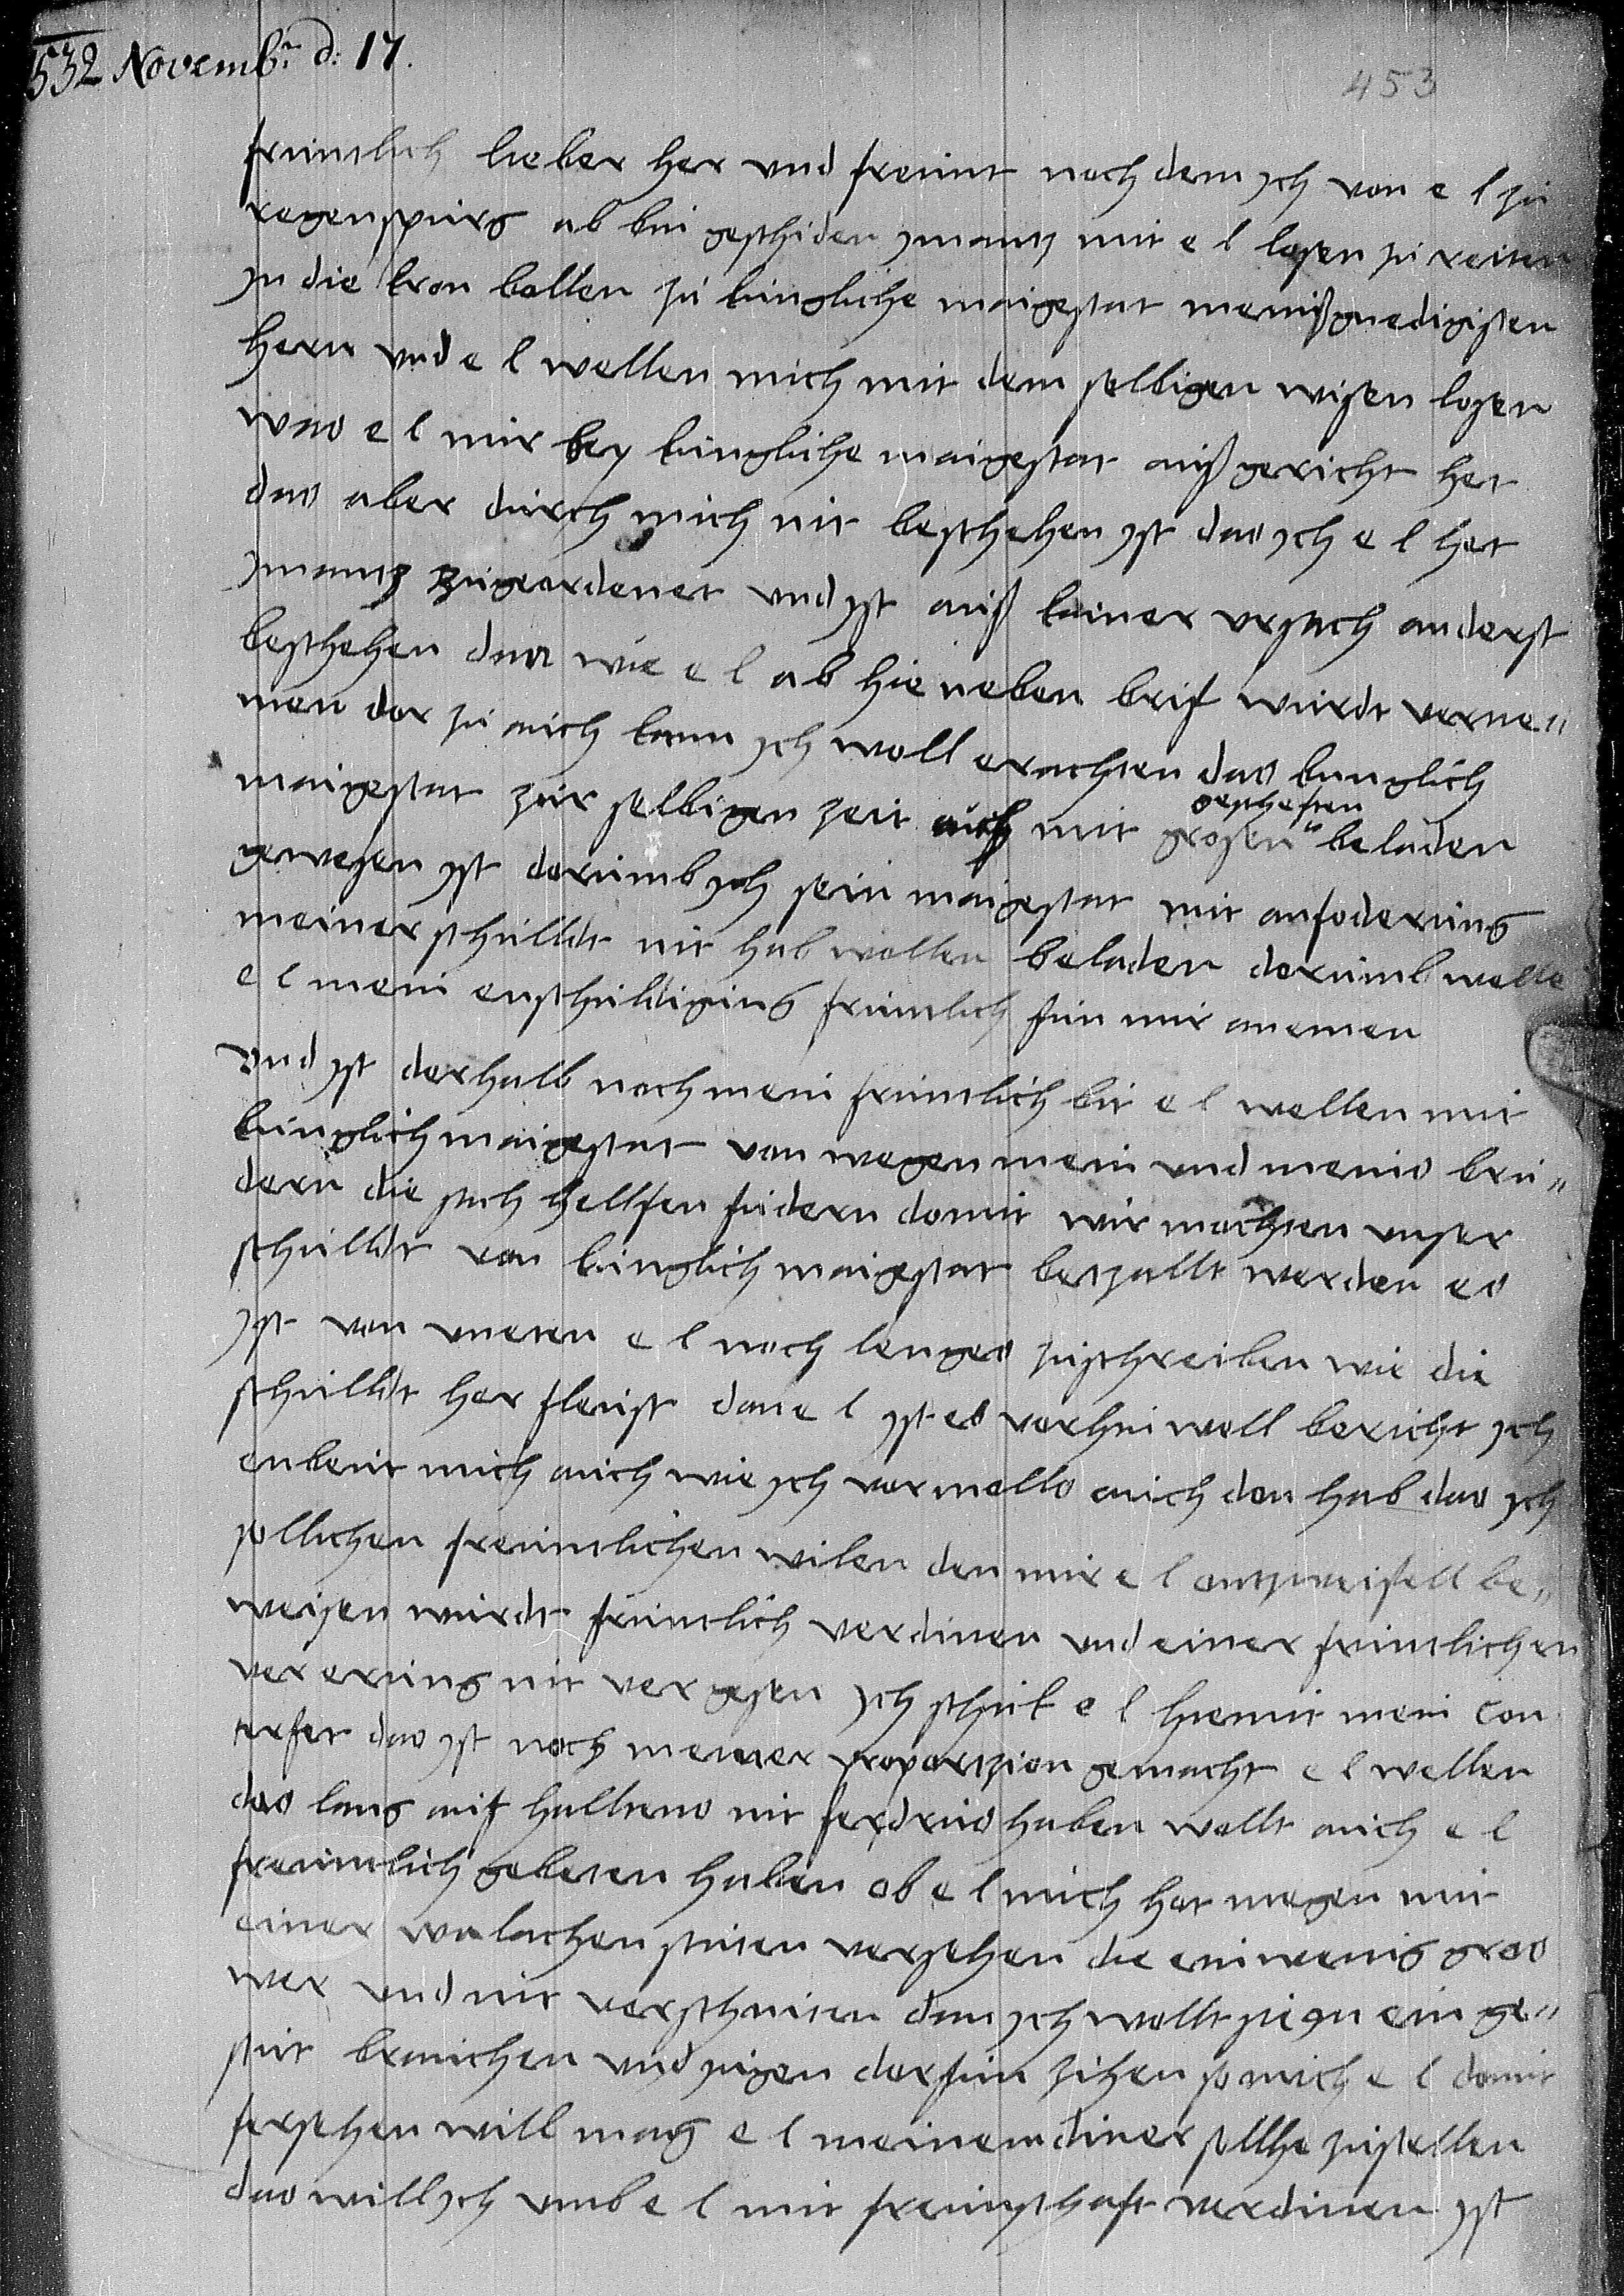 1532 Novemb:r d: 17.
453
früntlich lieber her vnd freunt noch dem ych von e l zu
regenspurg ab bin geschiden ymantz mit e l losen zu reiten
yn die kron bollen zu kungliche maigestat meinß gnedigisten
hern vnd e l wellen mich mit dem selbigen wisen losen
was e l mir bey kungliche maigestat auß gericht het
das aber durch mich nit beschehen yst das ych e l het
ymantz zugeordenet vnd yst auß kainer vrsach anderst
beschehen dan wie e l ab hie neben brif wurdt verne„
men dar zu auch kann ych woll erachten das kunglich
maigestat zur selbigen zeit auch mit grosen gescheften beladen
gewesen yst dorumb ych sein maigestat mit anfoderung
meiner schulldt nit hab wollen beladen dorumb welle
e l mein enschuldigung früntlich fun mir anemen
vnd yst derhalb noch mein früntlich bit e l wellen mit
kunglich maigestat von wegen mein vnd meins bru„
dern die sach hellfen fudern domit wir mochten vnser
schulldt von kunglich maigestat betzallt werden es
yst von vneten e l noch lenges zuschreiben wie die
schulldt her fleust dan e l yst es vorhin woll bericht ych
enbeut mich auch wie ych vormolls auch don hab das ych
sollichen freuntlichen wilen den mir e l ontzweifell be„
weisen wurdt früntlich verdinen vnd einer früntlichen
vererung nit vergesen ych schick e l hiemit mein con
terfet das yst noch meiner proportzion gemacht e l wellen
das lang auf halltens nit ferdrus haben wollt auch e l
freuntlich gebeten haben ob e l mich het megen mit
einer walachen stuten versehen die ein wenig gros
wer vnd nit verschniten dan ych wollt sie yn ein ge„
stut brauchen vnd zugen dorfun zihen so mich e l domit
fersehen will mag e l meinem diner sollhe zustellen
das will ych vmb e l mit freuntschaft verdinen yst